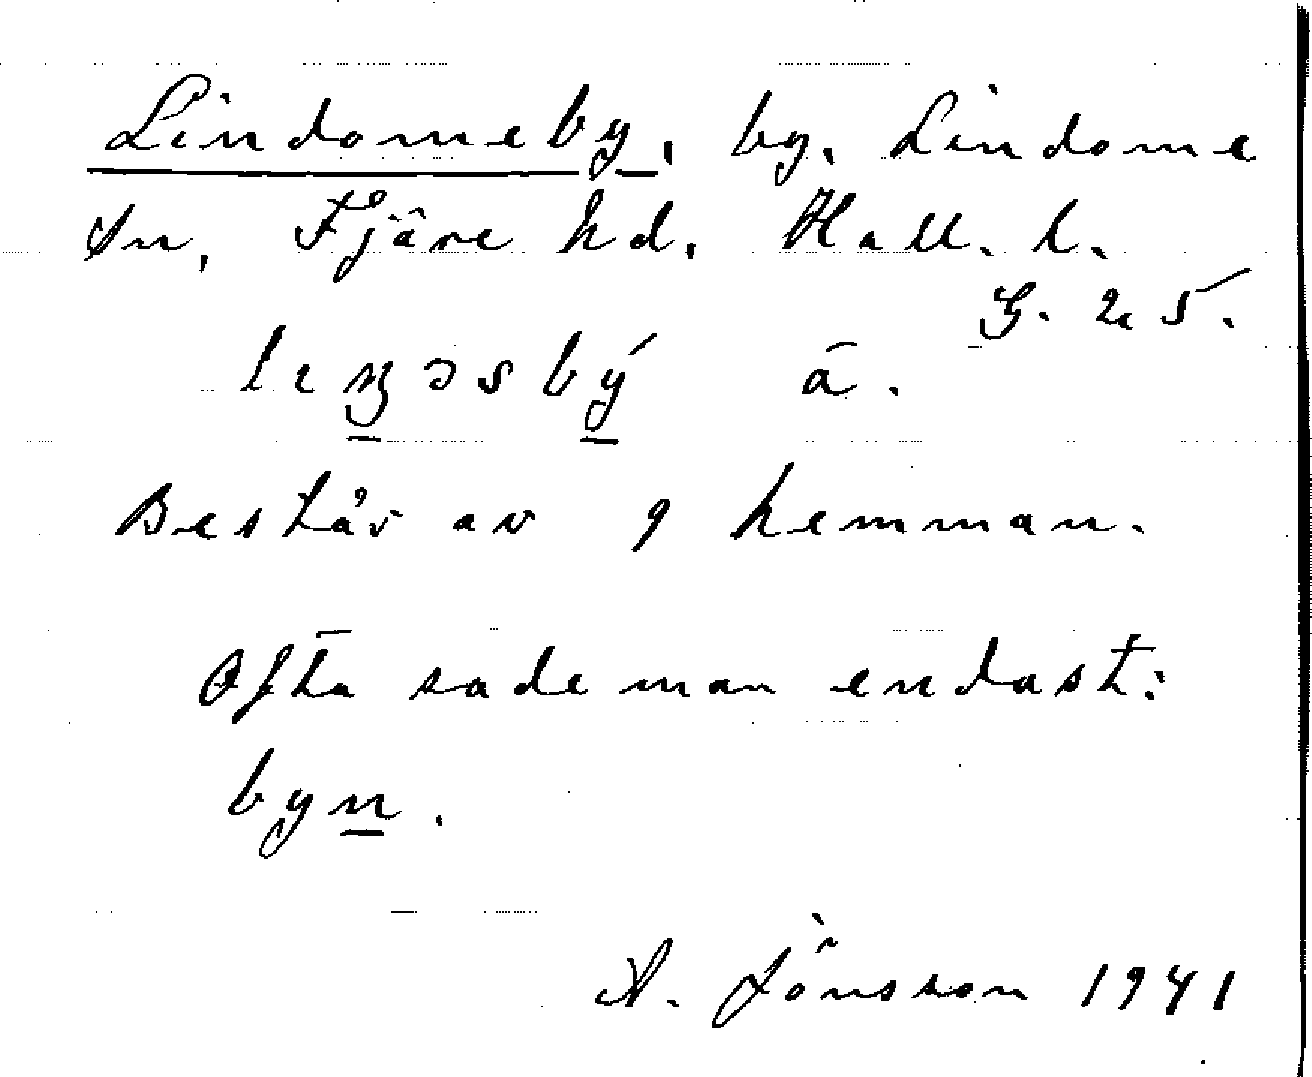 Lindomeby, by. Lindome
Sn, Fjäre hd. Hall. l.
G. 25.
bý ā.
Består av 9 hemman.
Ofta sade man endast:
byn.
A. Jönsson 1941